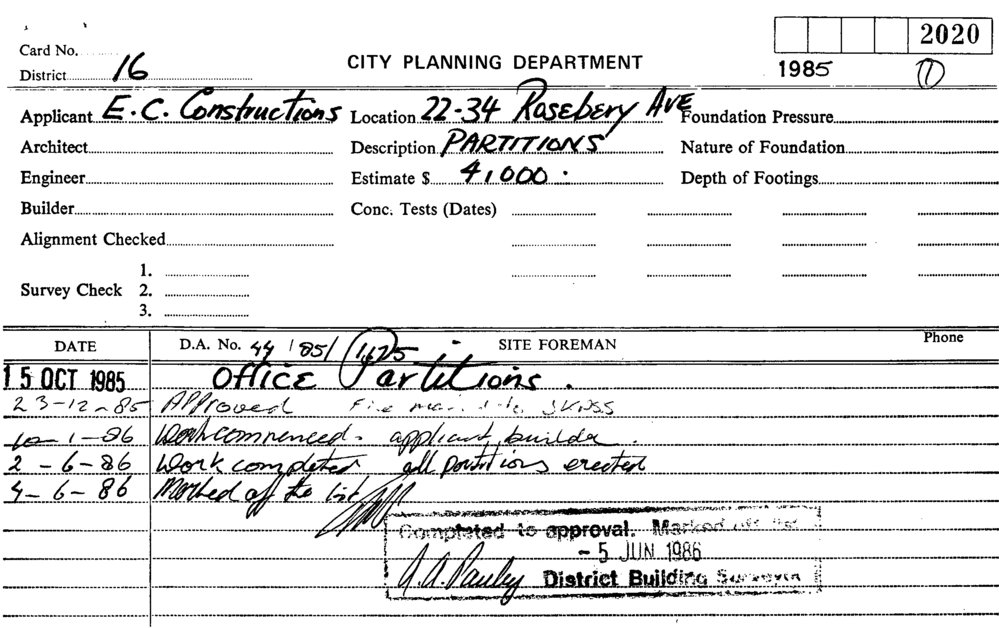 2020
Card No.
CITY PLANNING DEPARTMENT
District 16
1985 1
Applicant E.C. Constructions Location 22-34 Rosebery AVE Foundation Pressure
Architect Description PARTITIONS Nature of Foundation
Engineer Estimate $ 41000. Depth of Footings
Builder Conc. Tests (Dates)
Alignment Checked
1.
Survey Check 2.
3.
DATE D.A. No. 44/85/1625 SITE FOREMAN Phone
15 OCT 1985 Office Partitions.
23-12-85 Approved File
10-1-86 Work commenced. applicant, builder.
2-6-86 Work completed all partitions erected
4-6-86 Marked off the list
Completed to approval. Marked off list
- 5 JUN 1986
District Building Surveyor